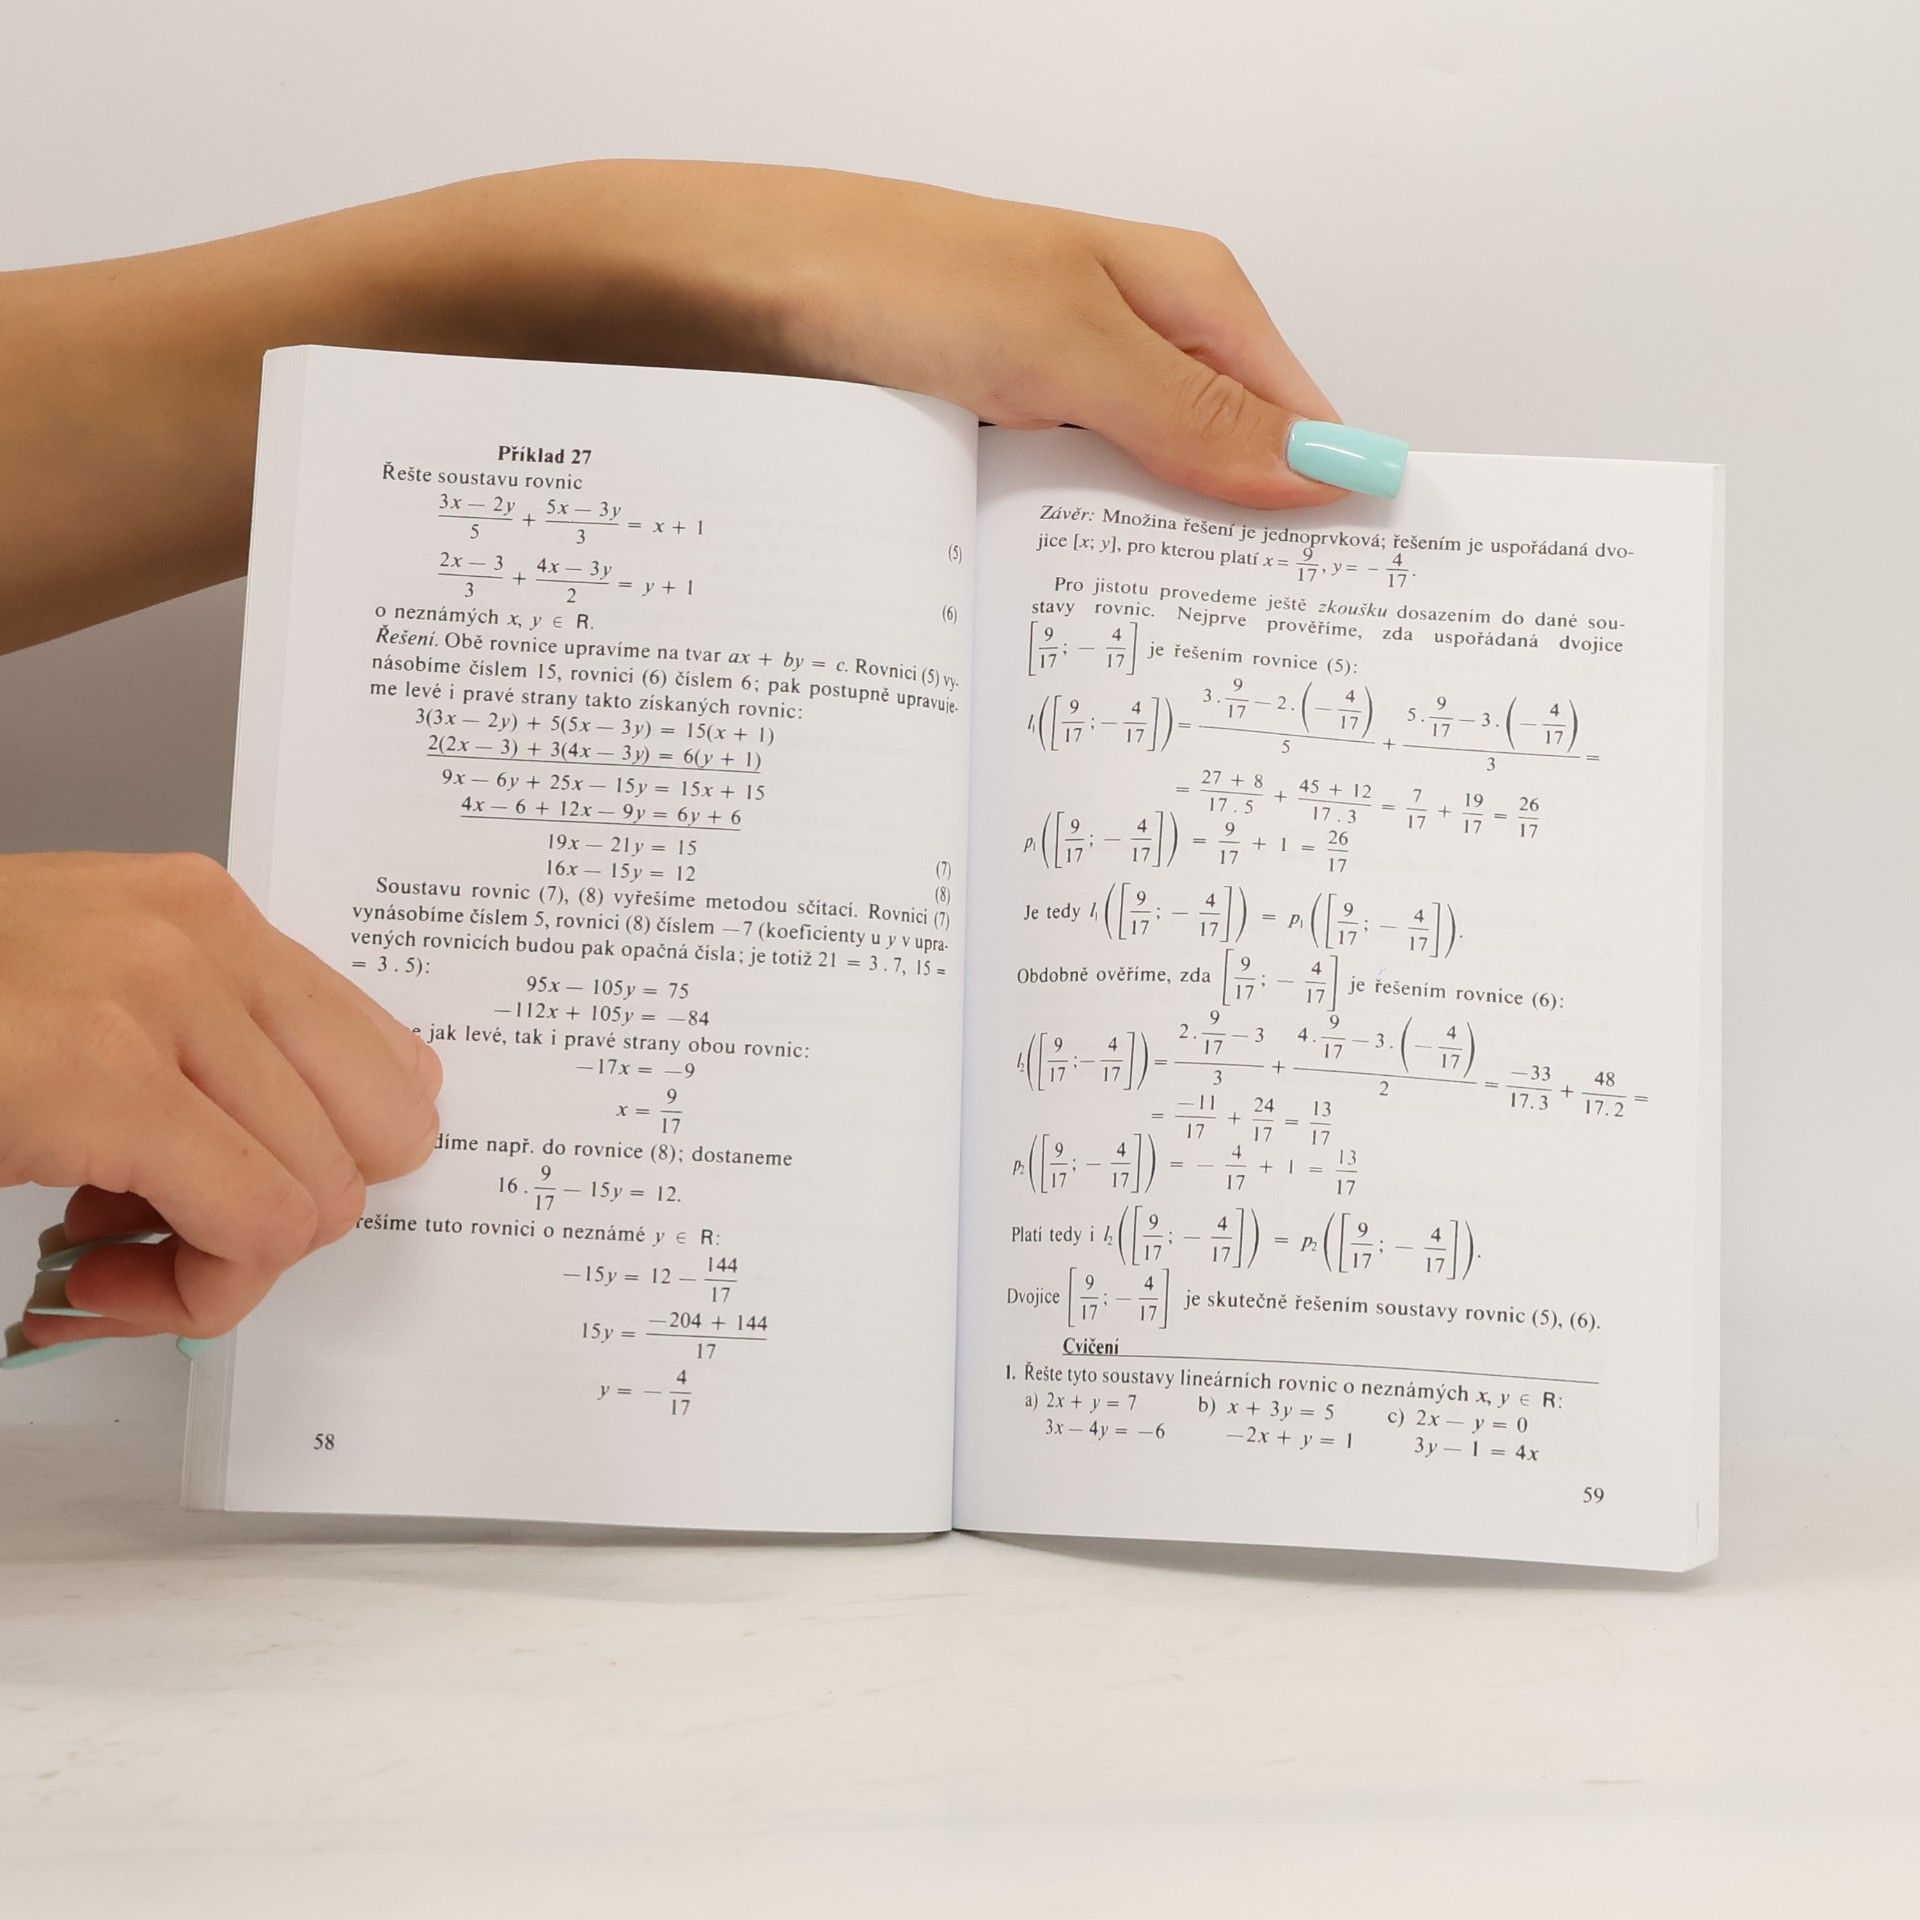 Příklad 27
Řešte soustavu rovnic
(3x — 2y)/5 + (5x — 3y)/3 = x + 1 (5)
(2x — 3)/3 + (4x — 3y)/2 = y + 1 (6)
o neznámých x, y ∈ R.
Řešení. Obě rovnice upravíme na tvar ax + by = c. Rovnici (5) vy-
násobíme číslem 15, rovnici (6) číslem 6; pak postupně upravuje-
me levé i pravé strany takto získaných rovnic:
3(3x — 2y) + 5(5x — 3y) = 15(x + 1)
2(2x — 3) + 3(4x — 3y) = 6(y + 1)
9x — 6y + 25x — 15y = 15x + 15
4x — 6 + 12x — 9y = 6y + 6
19x — 21y = 15 (7)
16x — 15y = 12 (8)
Soustavu rovnic (7), (8) vyřešíme metodou sčítací. Rovnici (7)
vynásobíme číslem 5, rovnici (8) číslem —7 (koeficienty u y v upra-
vených rovnicích budou pak opačná čísla; je totiž 21 = 3 . 7, 15 =
= 3 . 5):
95x — 105y = 75
—112x + 105y = —84
jak levé, tak i pravé strany obou rovnic:
—17x = —9
x = 9/17
díme např. do rovnice (8); dostaneme
16 . 9/17 — 15y = 12.
řešíme tuto rovnici o neznámé y ∈ R:
—15y = 12 — 144/17
15y = (—204 + 144)/17
y = — 4/17
58
Závěr: Množina řešení je jednoprvková; řešením je uspořádaná dvo-
jice [x; y], pro kterou platí x = 9/17, y = — 4/17.
Pro jistotu provedeme ještě zkoušku dosazením do dané sou-
stavy rovnic. Nejprve prověříme, zda uspořádaná dvojice
[9/17; — 4/17] je řešením rovnice (5):
l₁([9/17; — 4/17]) = (3 . 9/17 — 2 . (— 4/17))/5 + (5 . 9/17 — 3 . (— 4/17))/3 =
= (27 + 8)/(17 . 5) + (45 + 12)/(17 . 3) = 7/17 + 19/17 = 26/17
p₁([9/17; — 4/17]) = 9/17 + 1 = 26/17
Je tedy l₁([9/17; — 4/17]) = p₁([9/17; — 4/17]).
Obdobně ověříme, zda [9/17; — 4/17] je řešením rovnice (6):
l₂([9/17; — 4/17]) = (2 . 9/17 — 3)/3 + (4 . 9/17 — 3 . (— 4/17))/2 = —33/(17 . 3) + 48/(17 . 2) =
= —11/17 + 24/17 = 13/17
p₂([9/17; — 4/17]) = — 4/17 + 1 = 13/17
Platí tedy i l₂([9/17; — 4/17]) = p₂([9/17; — 4/17]).
Dvojice [9/17; — 4/17] je skutečně řešením soustavy rovnic (5), (6).
Cvičení
1. Řešte tyto soustavy lineárních rovnic o neznámých x, y ∈ R:
a) 2x + y = 7 b) x + 3y = 5 c) 2x — y = 0
3x — 4y = —6 —2x + y = 1 3y — 1 = 4x
59